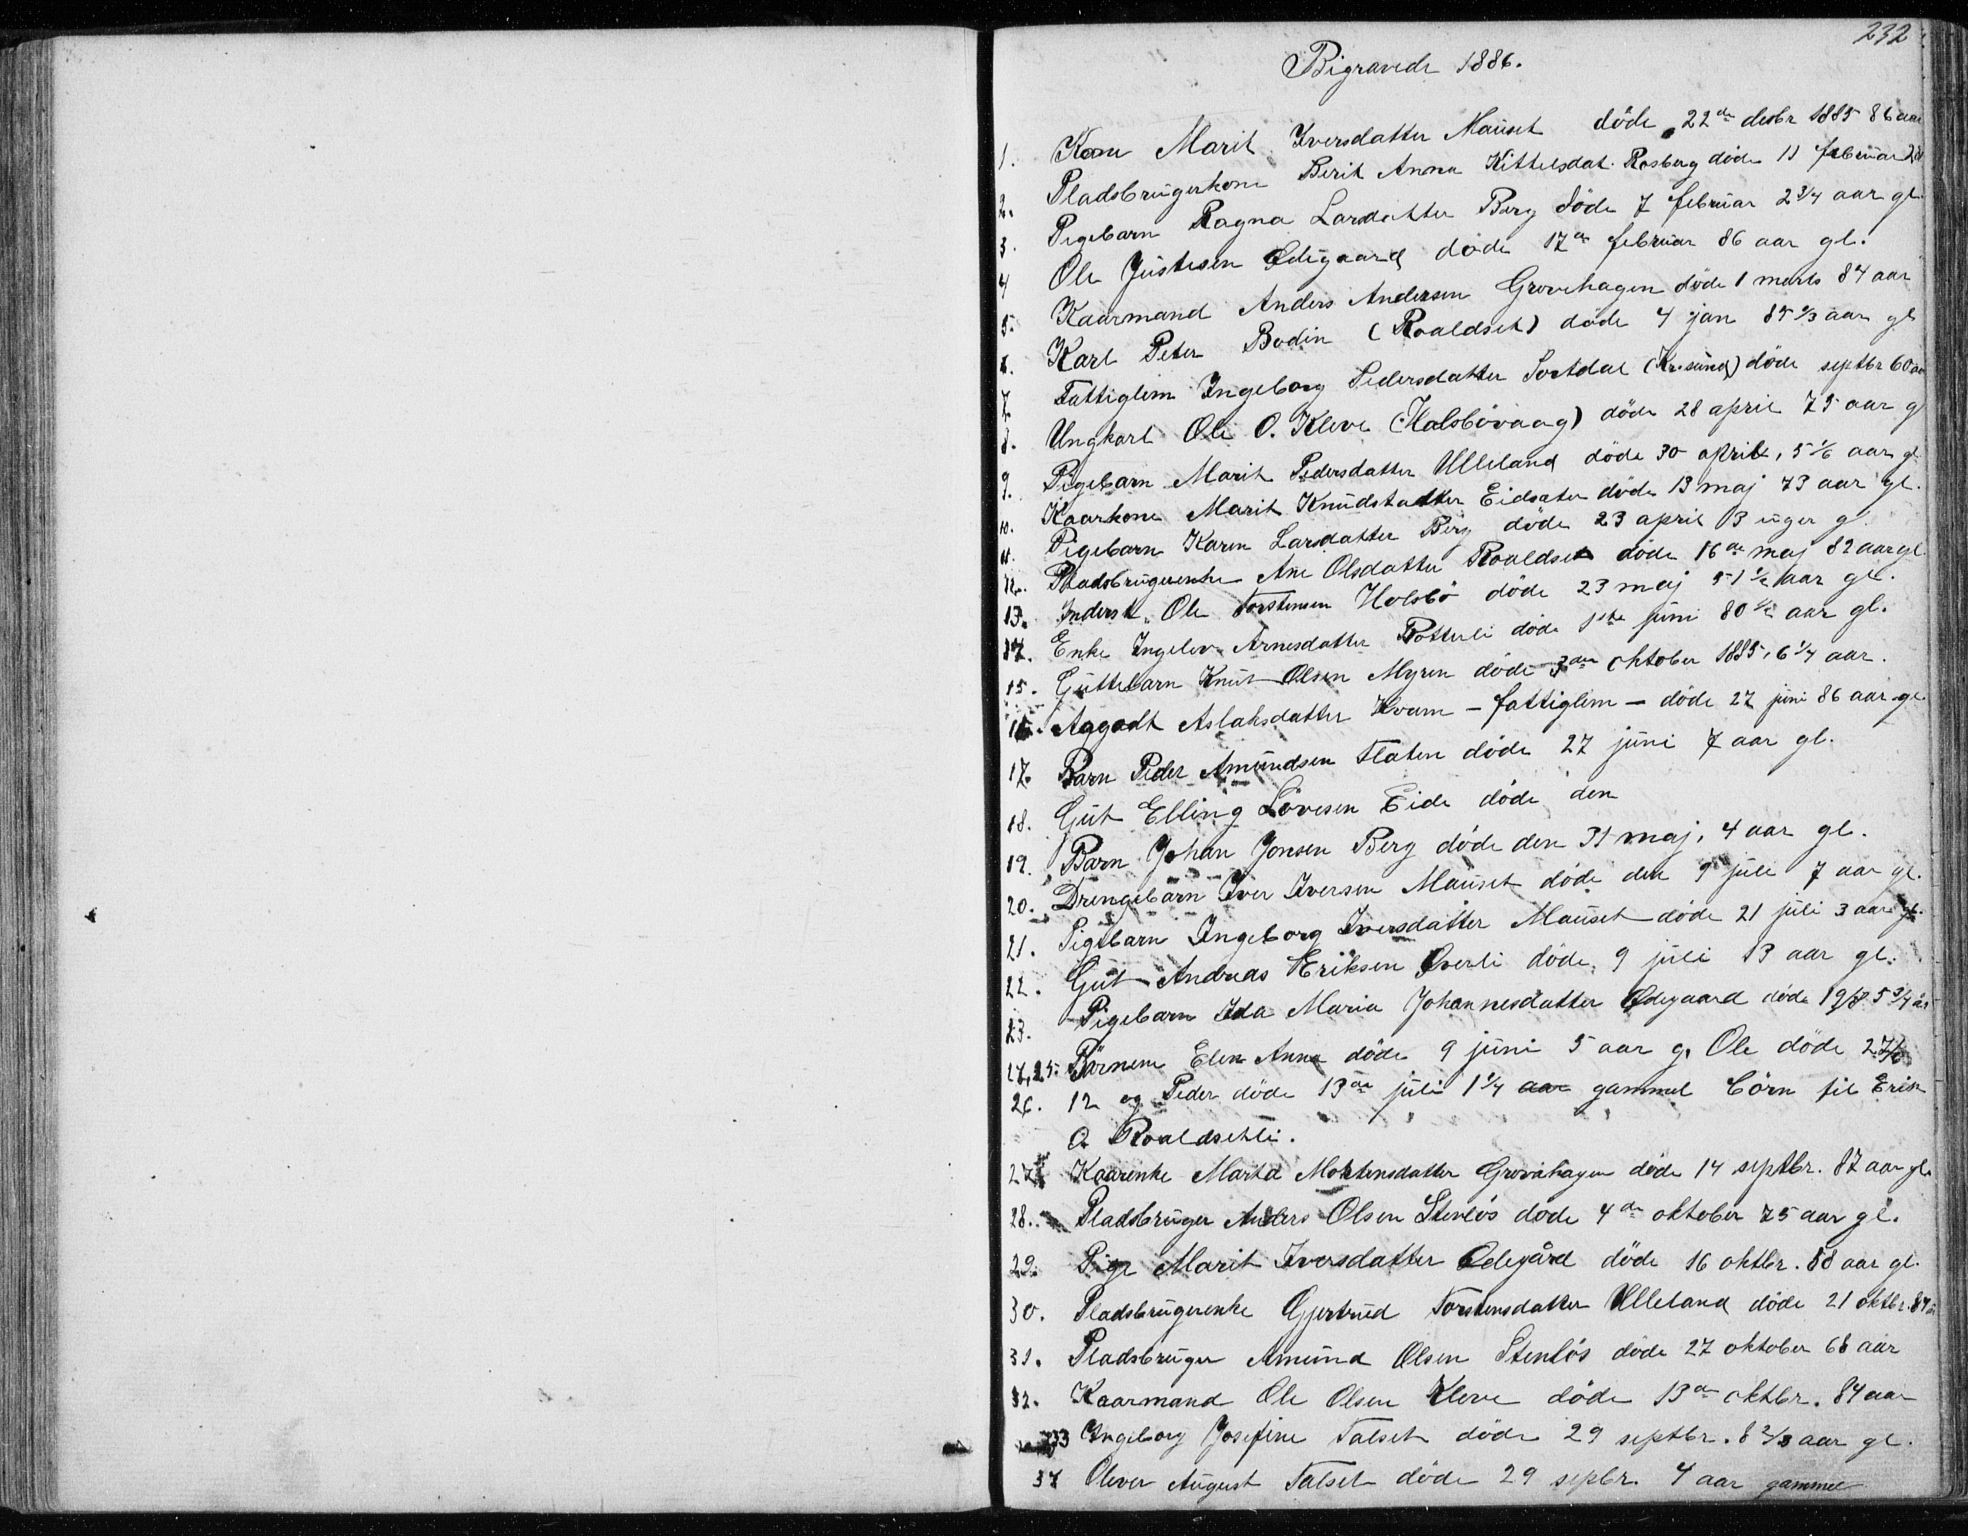 232
Bigravede 1886.
1. Kone Marit Iversdatter Mauset döde 22de desbr 1885 86 aar
2. Pladsbrugerkone Berit Anna Kittelsdat. Rosberg döde 11 februar 28
3. Pigebarn Ragna Larsdatter Berg döde 7 februar 2 3/4 aar gl.
4 Ole Justesen Ødegaard döde 17de februar 86 aar gl.
5. Kaarmand Anders Andersen Grovehagen döde 1 marts 84 aar
6. Karl Peter Bodin (Roaldset) döde 4 jan 85 2/3 aar gl
7. Fattiglem Ingeborg Pedersdatter Sortdal (Kr.sund) döde septbr 60 aar
8. Ungkarl Ole O. Kleve (Halsbövaag) döde 28 april 75 aar g
9. Pigebarn Marit Pedersdatter Ulleland döde 30 april, 5 1/6 aar gl
10. Kaarkone Marit Knudsdatter Eidsæter döde 13 maj 73 aar gl.
11. Pigebarn Karen Larsdatter Berg döde 23 april 13 uger gl.
12. Pladsbrugerenke Ane Olsdatter Roaldset döde 16de maj 82 aar gl
13. Inderst. Ole Torstensen Holsbö döde 23 maj 51 1/2 aar gl.
14. Enke Ingelev Arnesdatter Rotterli döde 1ste juni 80 1/2 aar gl.
15. Guttebarn Knut Olsen Myren döde 3die oktober 1885, 6 1/4 aar.
16. Aagadt Aslaksdatter Kvam - fattiglem - döde 27 juni 86 aar gl
17. Barn Peder Amundsen Flaten döde 27 juni 7 aar gl.
18. Gut Elling Lövesen Eide döde den
19. Barn Johan Jonsen Berg döde den 31 maj, 4 aar gl.
20. Drengebarn Iver Iversen Mauset döde den 9 juli 7 aar gl.
21. Pigebarn Ingeborg Iversdatter Mauset döde 21 juli 3 aar gl.
22. Gut Andreas Eriksen Øverli döde 9 juli 13 aar gl.
23. Pigebarn Ida Maria Johannesdatter Ødegaard döde 19/8 5 3/4 år
24,25. Börnene Elen Anna döde 9 juni 5 aar g. Ole döde 27/6
26. 12 og Peder döde 13de juli 1 1/4 aar gammel börn til Erik
O Roaldsetli.
27. Kaarenke Marta Mortensdatter Grovahagen döde 14 septbr. 87 aar gl.
28. Pladsbruger Anders Olsen Stenlös döde 4de oktober 75 aar gl.
29. Pige Marit Iversdatter Ødegård döde 16 oktbr. 88 aar gl.
30. Pladsbrugerenke Gjertrud Torstensdatter Ulleland döde 21 oktbr. 84 år
31. Pladsbruger Amund Olsen Stenlös döde 27 oktober 68 aar
32. Kaarmand Ole Olsen Kleve döde 13de oktbr. 84 aar
33 Ingeborg Josefine Talset döde 29 septbr. 8 2/3 aar gl.
34 Oliver August Talset döde 29 sepbr. 4 aar gammel